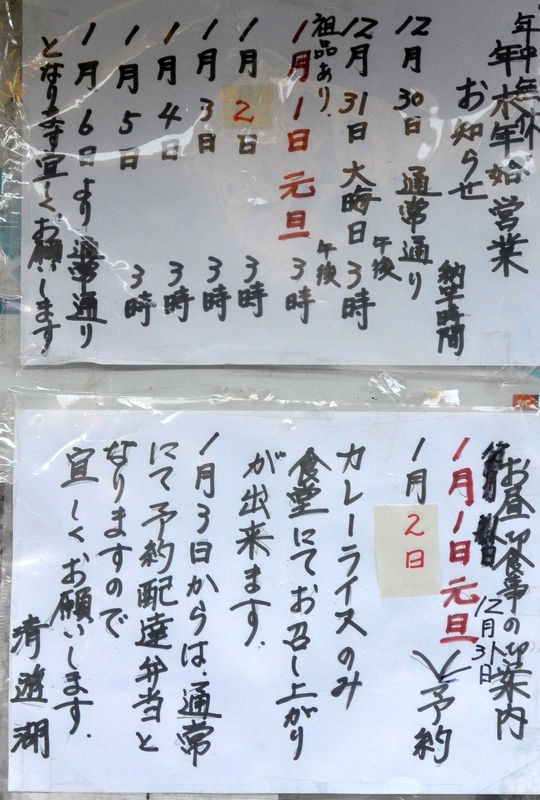 年中無休
年末年始営業
お知らせ
納竿時間
12月30日 通常通り
午後
12月31日 大晦日 3時
粗品あり、
午後
1月1日 元旦 3時
1月2日 3時
1月3日 3時
1月4日 3時
1月5日 3時
1月6日より通常通り
となります宜しくお願いします。
お昼御食事の御案内
12月31日
1月1日元旦
1月2日 予約
カレーライスのみ
食堂にてお召し上がり
が出来ます。
1月3日からは、通常
にて予約配達弁当と
なりますので
宜しくお願いします。
清遊湖